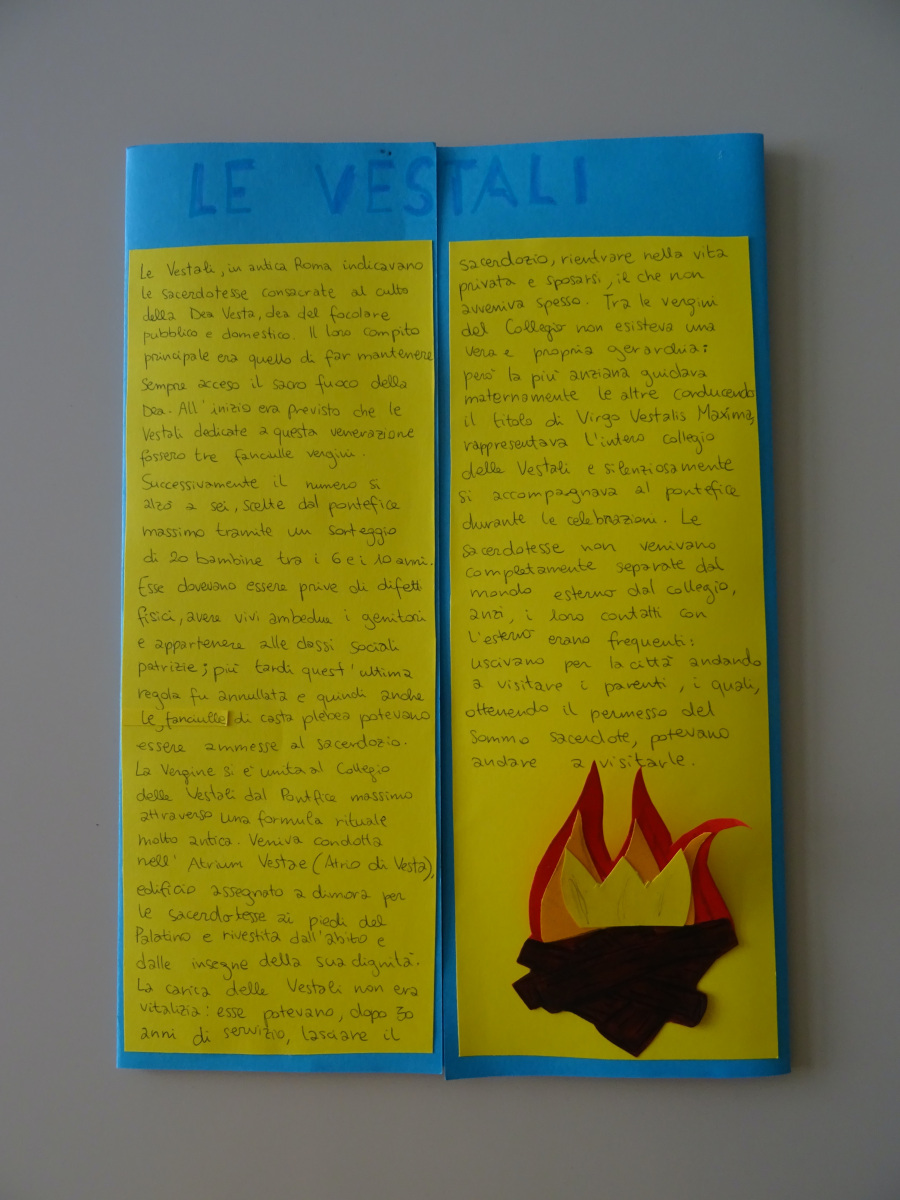 LE VESTALI
Le Vestali, in antica Roma indicavano
le sacerdotesse consacrate al culto
della Dea Vesta, dea del focolare
pubblico e domestico. Il loro compito
principale era quello di far mantenere
sempre acceso il sacro fuoco della
Dea. All'inizio era previsto che le
Vestali dedicate a questa venerazione
fossero tre fanciulle vergini.
Successivamente il numero si
alzò a sei, scelte dal pontefice
massimo tramite un sorteggio
di 20 bambine tra i 6 e i 10 anni.
Esse dovevano essere prive di difetti
fisici, avere vivi ambedue i genitori
e appartenere alle classi sociali
patrizie; più tardi quest'ultima
regola fu annullata e quindi anche
le fanciulle di casta plebea potevano
essere ammesse al sacerdozio.
La Vergine si è unita al Collegio
delle Vestali dal Pontfice massimo
attraverso una formula rituale
molto antica. Veniva condotta
nell' Atrium Vestae (Atrio di Vesta),
edificio assegnato a dimora per
le sacerdotesse ai piedi del
Palatino e rivestita dall'abito e
dalle insegne della sua dignità.
La carica delle Vestali non era
vitalizia: esse potevano, dopo 30
anni di servizio, lasciare il
sacerdozio, rientrare nella vita
privata e sposarsi, il che non
avveniva spesso. Tra le vergini
del Collegio non esisteva una
vera e propria gerarchia:
però la più anziana guidava
maternamente le altre conducendo
il titolo di Virgo Vestalis Maxima,
rappresentava l'intero collegio
delle Vestali e silenziosamente
si accompagnava al pontefice
durante le celebrazioni. Le
sacerdotesse non venivano
completamente separate dal
mondo esterno dal collegio,
anzi, i loro contatti con
l'esterno erano frequenti:
uscivano per la città andando
a visitare i parenti, i quali,
ottenendo il permesso del
Sommo sacerdote, potevano
andare a visitarle.